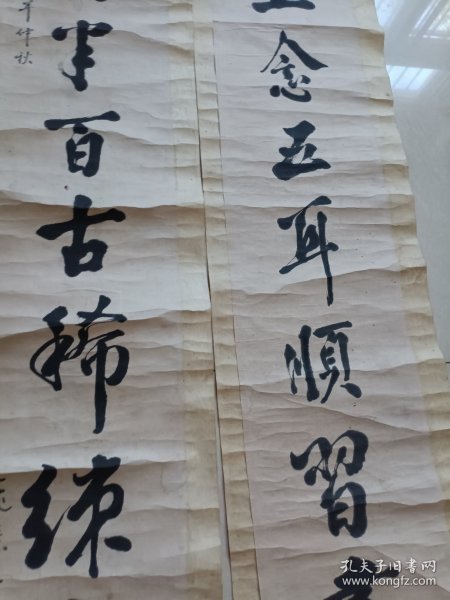 念五耳順習
半百古稀練
年仲秋
孔夫子旧书网
www.kongfz.com